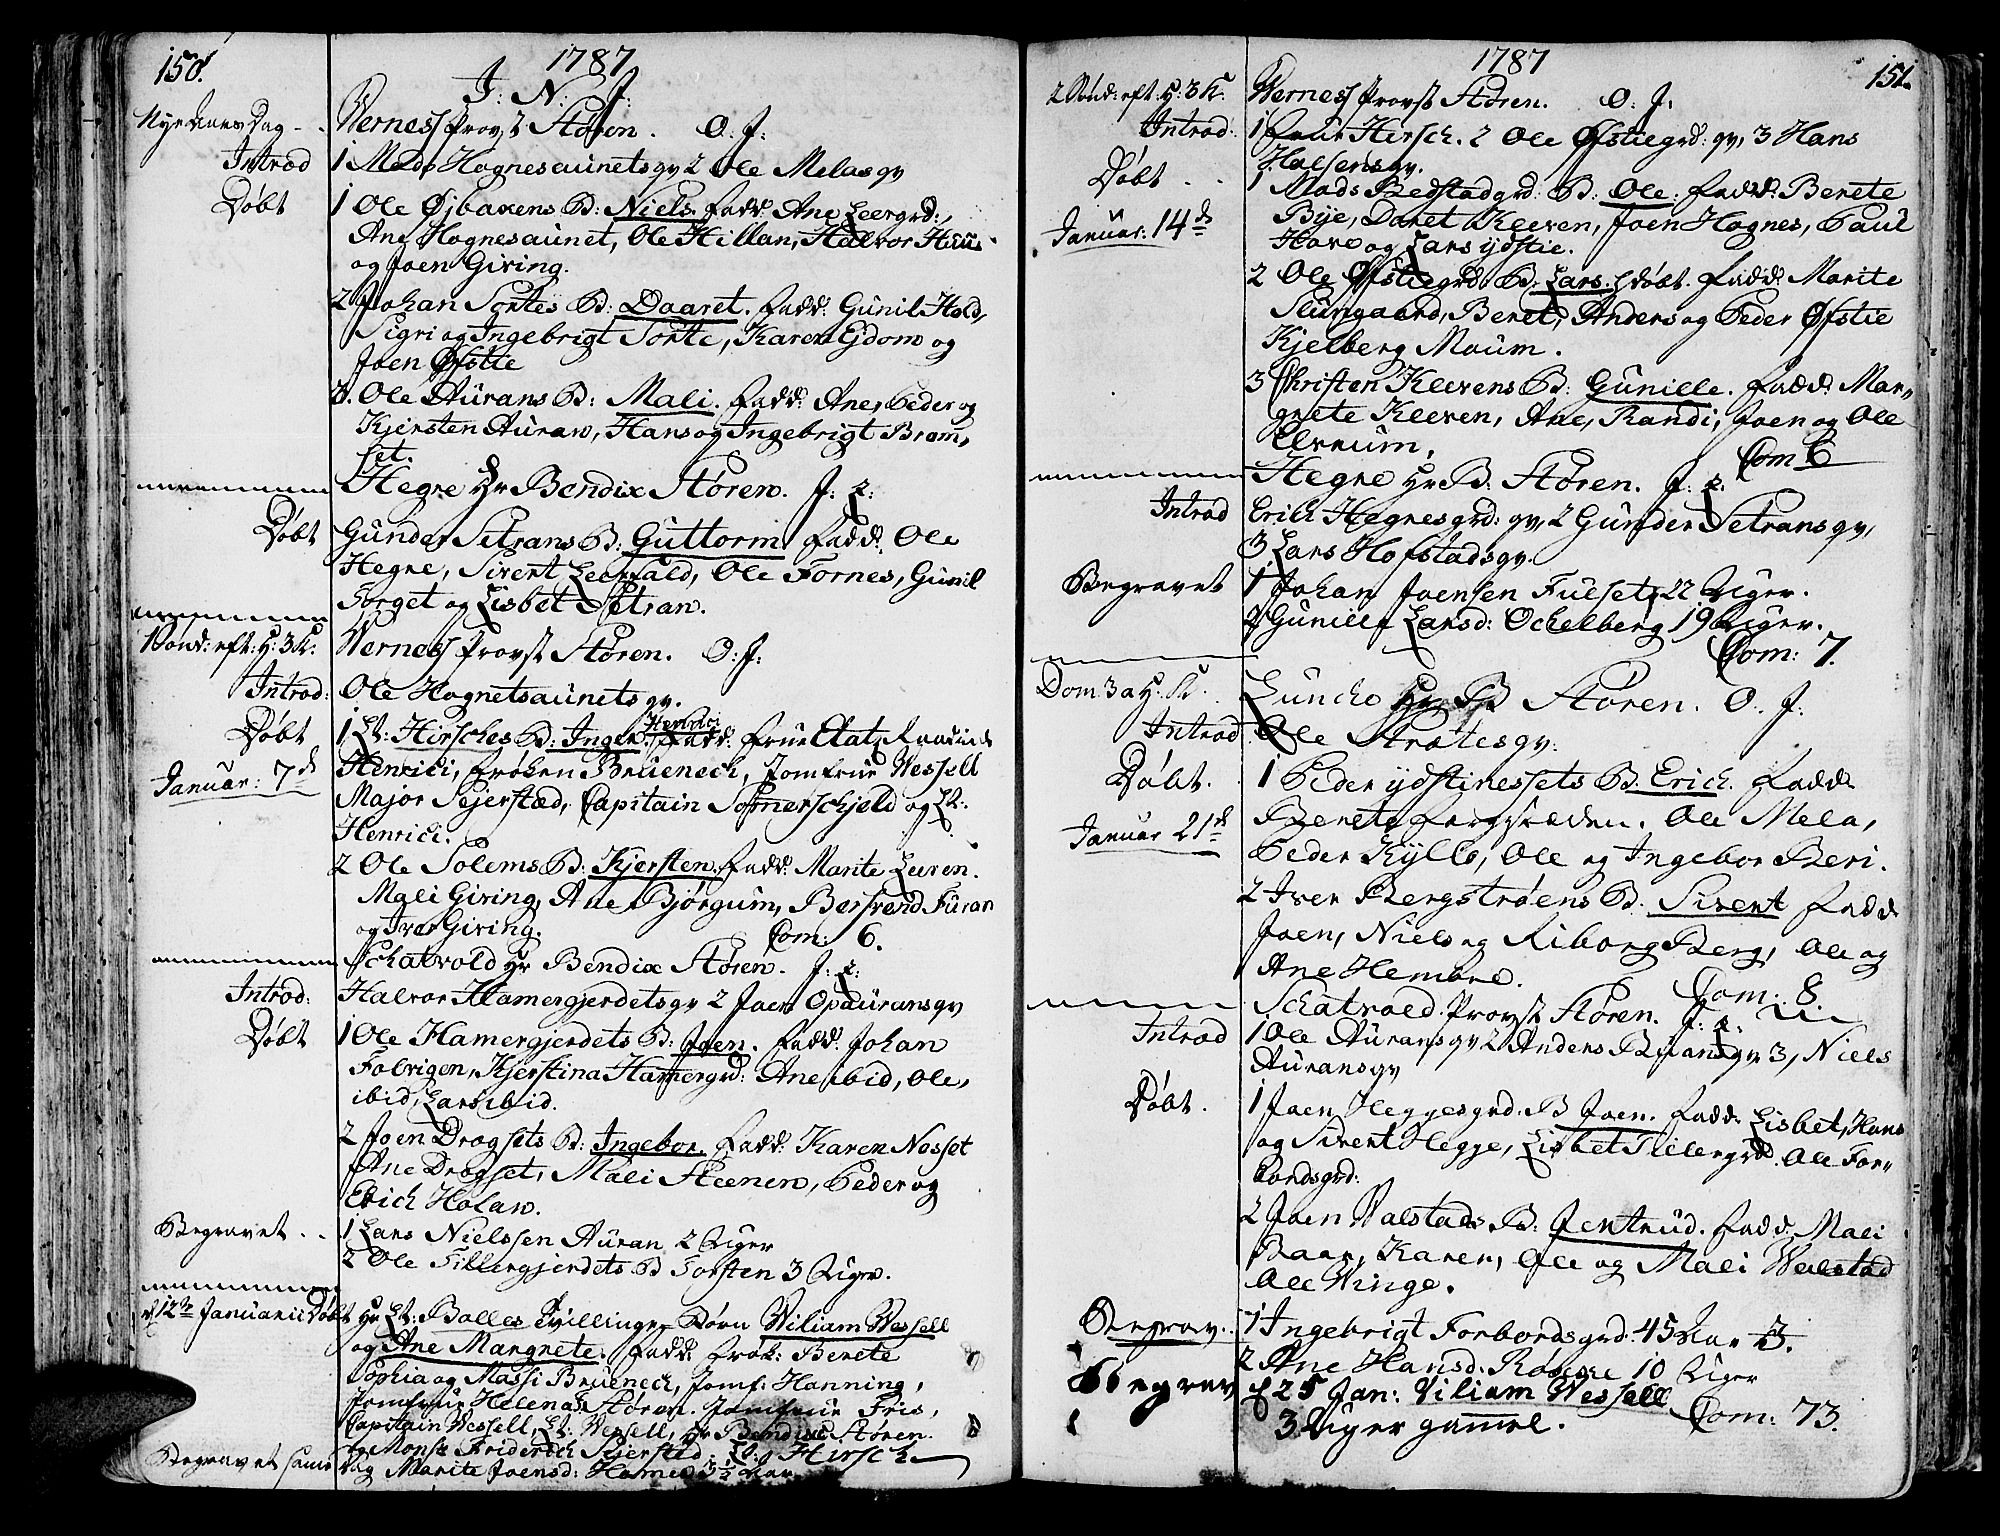 150.
1787
J: N: J:
Nye Aars Dag
Werness Provst Støren. O: J:
Introd
1 Mads Hognesaunets gv 2 Ole Melas gv
Døbt
1 Ole Øjbakens B: Niels. Fadd: Ane Leergrd:,
Ane Hognesaunet, Ole Hillan, Halvor
og Joen Giring.
2 Johan Sortes B: Daaret. Fadd: Gunil Hold,
Sigri og Ingebrigt Sorte, Karen Ejdom og
Joen Øfstie
3. Ole Aurans B: Mali. Fadd: Ane, Peder og
Kjersten Auran, Hans og Ingebrigt Brom,
set.
Hegre Hr Bendix Støren. J: 2:
Døbt
Gunder Setrans B: Guttorm Fadd: Ole
Hegre, Sivert Leerfald, Ole Fornes, Gunil
Forget og Lisbet Setran.
1 Sond: eft: H: 3 K:
Werness Provst Støren. O: J:
Introd:
Ole Hognetsaunets gv.
Døbt
1 Lt: Hirsches B: Inger Henrici Fadd: Frue Etatz Raadinde
Januar: 7d
Henrici, Frøken Brueneck, Jomfrue Wessell
Major Sejersted, Capitain Sommerschjeld og Lt:
Henrici.
2 Ole Solems B: Kjersten. Fadd: Marite Leeren.
Mali Giring, Ane Bjørgum, Bersvend Furan
og Iver Giring. Com: 6.
Schatvold Hr Bendix Støren. J: 2:
Introd:
Halvor Hamergjerdets gv 2 Joen Opaurans gv
Døbt
1 Ole Hamergjerdets B: Joen. Fadd: Johan
Folvigen, Kjerstina Hamergrd: Ane ibid, Ole,
ibid, Lars ibid.
2 Joen Drogsets B: Ingebor. Fadd: Karen Nosset
Ane Drogset, Mali Steenen, Peder og
Erich Holan.
Begravet
1 Lars Nielssen Auran 2 Uger
2 Ole Tillergjerdets B Torsten 3 Uger.
d 12te Januarii Døbt
Hr Lt: Balles Tvillinger Børn Wiliam Wessell
og Ane Margrete. Fadd: Frøk: Berete
Sophia og Massi Brueneck, Jomf: Hanning,
Jomfrue Helena Støren. Jomfrue Fris,
Capitain Wessell, Lt: Wessell, Hr Bendix Støren.
og Mons: Friderich Sejersted. Lt: Hirsch
Begravet samme Dag Marite Joensd:

151.
1787
2 Sönd: eft: H: 3 K.
Werness Provst Støren. O: J:
Introd:
1 Frue Hirsch. 2 Ole Øfstiegrd: gv, 3 Hans
Halsens gv.
Døbt
1 Mads Begstadgrd: B: Ole: Fadd: Berete
Januar: 14d
Bye, Daret Kleeven, Joen Hognes, Paul
Have og Lars ydstie.
2 Ole Øfstiegrd: B. Lars. Fadd: Marite
Stungaard, Beret, Anders og Peder Øfstie
Kjelberg Moum.
3 Christen Kleevens B: Gunille. Fadd: Mar-
grete Kleeven, Ane, Randi, Joen og Ole
Elvrum. Com 6
Hegre Hr B. Støren. J: 2:
Introd
Erich Hegresgrd: gv, 2 Gunder Setrans gv,
3 Lars Hofstads gv.
Begravet
1 Johan Joensen Fulset 22 Uger.
2 Gunille Larsd: Ochelberg 19 Uger.
Com: 7.
Dom. 3 a H. K.
Luncke Hr B Støren. O. J:
Introd
Ole Strøtes gv:
Døbt.
1 Peder ydstinessets B. Erich. Fadd:
Januar 21d
Berete Forgstæden, Ole Mela,
Peder Kyllo, Ole og Ingebor Beri.
2 Iver Bergstrøens B: Sivert Fadd:
Joen, Niels og Riborg Berg, Ole og
Ane Hembre. Com: 8.
Schatvold Provst Støren. J: 2:
Introd
1 Ole Aurans gv 2 Anders gv 3, Niels
Aurans gv
Døbt.
1 Joen Heggesgrd: B Joen. Fadd: Lisbet, Hans
og Sivert Hegge, Lisbet Tillergrd. Ole For-
bordsgrd:
2 Joen Valstads B: Jertrud. Fadd: Mali
Baar, Karen, Ole og Mali Walstad
Ole Winge.
Begrav.
1 Ingebrigt Forbordsgrd: 45 Aar 3.
2 Ane Hansd: 10 Uger
Begrav
d 25 Jan: Wiliam Wessell
3 Uger gammel. Com: 73.